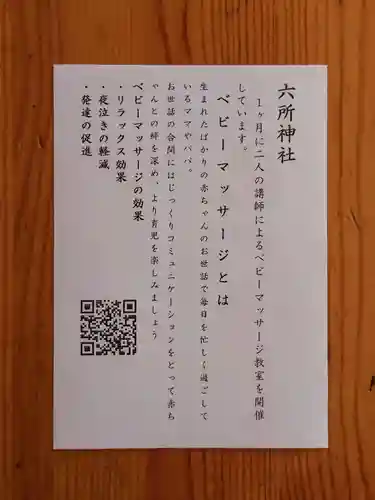 六所神社
１ヶ月に二人の講師によるベビーマッサージ教室を開催
しています。
ベビーマッサージとは
生まれたばかりの赤ちゃんのお世話で毎日を忙しく過ごして
いるママやパパ。
お世話の合間にはじっくりコミュニケーションをとって赤ち
ゃんとの絆を深め、より育児を楽しみましょう
ベビーマッサージの効果
・リラックス効果
・夜泣きの軽減
・発達の促進